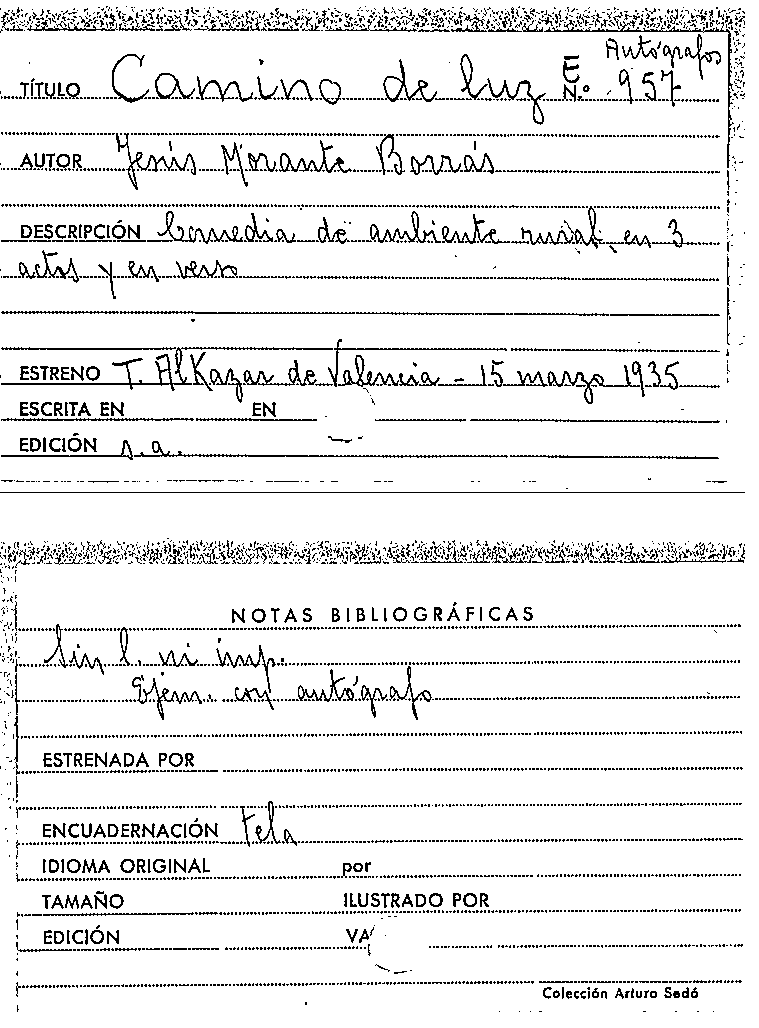 Autógrafos
TÍTULO Camino de luz E N.º 957
AUTOR Jesús Morante Borrás
DESCRIPCIÓN Comedia de ambiente rural, en 3
actos y en verso
ESTRENO T. AlKazar de Valencia - 15 marzo 1935
ESCRITA EN EN
EDICIÓN s.a.
NOTAS BIBLIOGRÁFICAS
Sin l. ni imp.
Ejem. con autógrafo
ESTRENADA POR
ENCUADERNACIÓN tela
IDIOMA ORIGINAL por
TAMAÑO ILUSTRADO POR
EDICIÓN VA
Colección Arturo Sedó